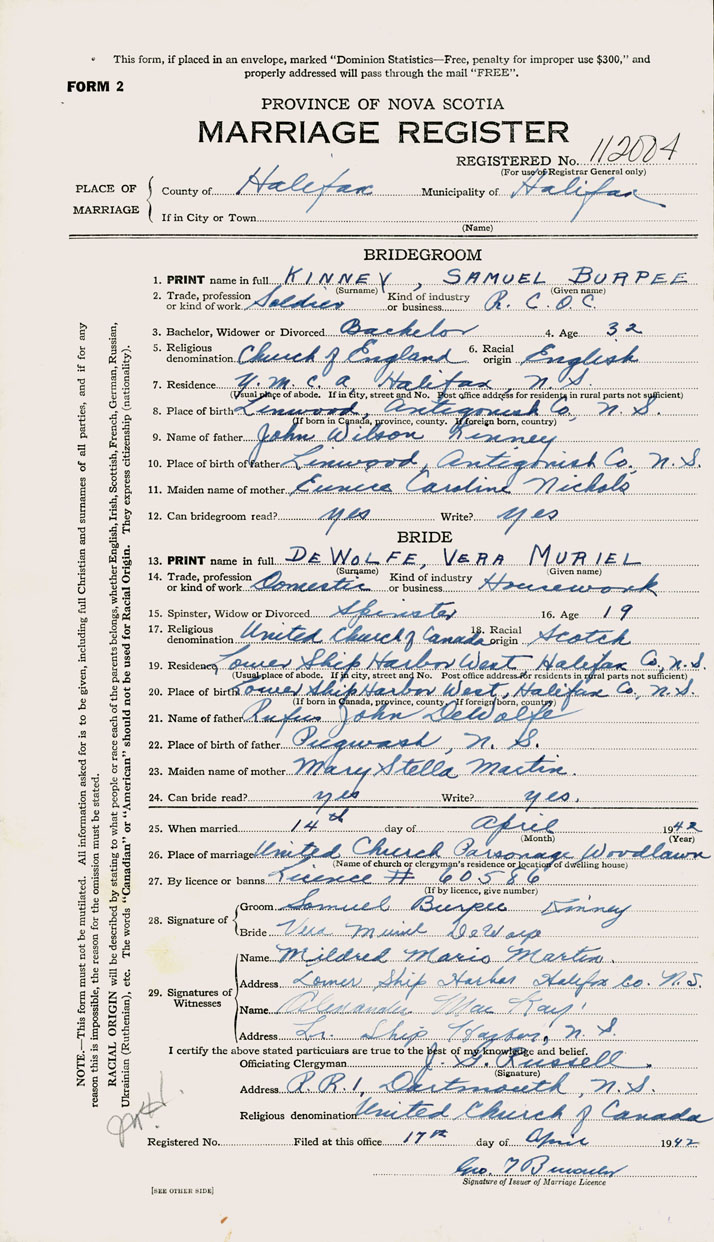 This form, if placed in an envelope, marked "Dominion Statistics—Free, penalty for improper use $300," and
properly addressed will pass through the mail "FREE".
FORM 2
PROVINCE OF NOVA SCOTIA
MARRIAGE REGISTER
REGISTERED No. 112004
(For use of Registrar General only)
PLACE OF MARRIAGE
County of Halifax Municipality of Halifax
If in City or Town
(Name)
BRIDEGROOM
1. PRINT name in full KINNEY, SAMUEL BURPEE
(Surname) (Given name)
2. Trade, profession or kind of work Soldier Kind of industry or business R. C. O. C.
3. Bachelor, Widower or Divorced Bachelor 4. Age 32
5. Religious denomination Church of England 6. Racial origin English
7. Residence Y. M. C. A, Halifax, N. S.
(Usual place of abode. If in city, street and No. Post office address for residents in rural parts not sufficient)
8. Place of birth Linwood, Antigonish Co, N. S.
(If born in Canada, province, county. If foreign born, country)
9. Name of father John Wilson Kinney
10. Place of birth of father Linwood, Antigonish Co, N. S.
11. Maiden name of mother Eunice Caroline Nichols
12. Can bridegroom read? yes Write? yes
BRIDE
13. PRINT name in full DEWOLFE, VERA MURIEL
(Surname) (Given name)
14. Trade, profession or kind of work Domestic Kind of industry or business Housework
15. Spinster, Widow or Divorced Spinster 16. Age 19
17. Religious denomination United Church of Canada 18. Racial origin Scotch
19. Residence Lower Ship Harbor West, Halifax Co., N. S.
(Usual place of abode. If in city, street and No. Post office address for residents in rural parts not sufficient)
20. Place of birth Lower Ship Harbor West, Halifax Co, N. S.
(If born in Canada, province, county. If foreign born, country)
21. Name of father Rufus John DeWolfe
22. Place of birth of father Pugwash, N. S.
23. Maiden name of mother Mary Stella Martin.
24. Can bride read? yes Write? yes.
25. When married 14th day of April 1942
(Month) (Year)
26. Place of marriage United Church Parsonage Woodlawn
(Name of church or clergyman's residence or location of dwelling house)
27. By licence or banns Licence # 60586
(If by licence, give number)
28. Signature of
Groom Samuel Burpee Kinney
Bride Vera Muriel DeWolfe
29. Signatures of Witnesses
Name Mildred Marie Martin.
Address Lower Ship Harbor Halifax Co. N. S.
Name Alexander MacKay
Address Lr. Ship Harbor, N. S.
I certify the above stated particulars are true to the best of my knowledge and belief.
Officiating Clergyman Russell.
(Signature)
Address R. R. 1, Dartmouth, N. S.
Religious denomination United Church of Canada
Registered No. Filed at this office 17th day of April 1942
Geo.
Signature of Issuer of Marriage Licence
[SEE OTHER SIDE]
NOTE.—This form must not be mutilated. All information asked for is to be given, including full Christian and surnames of all parties, and if for any
reason this is impossible, the reason for the omission must be stated.
RACIAL ORIGIN will be described by stating to what people or race each of the parents belongs, whether English, Irish, Scottish, French, German, Russian,
Ukrainian (Ruthenian), etc. The words "Canadian" or "American" should not be used for Racial Origin. They express citizenship (nationality).